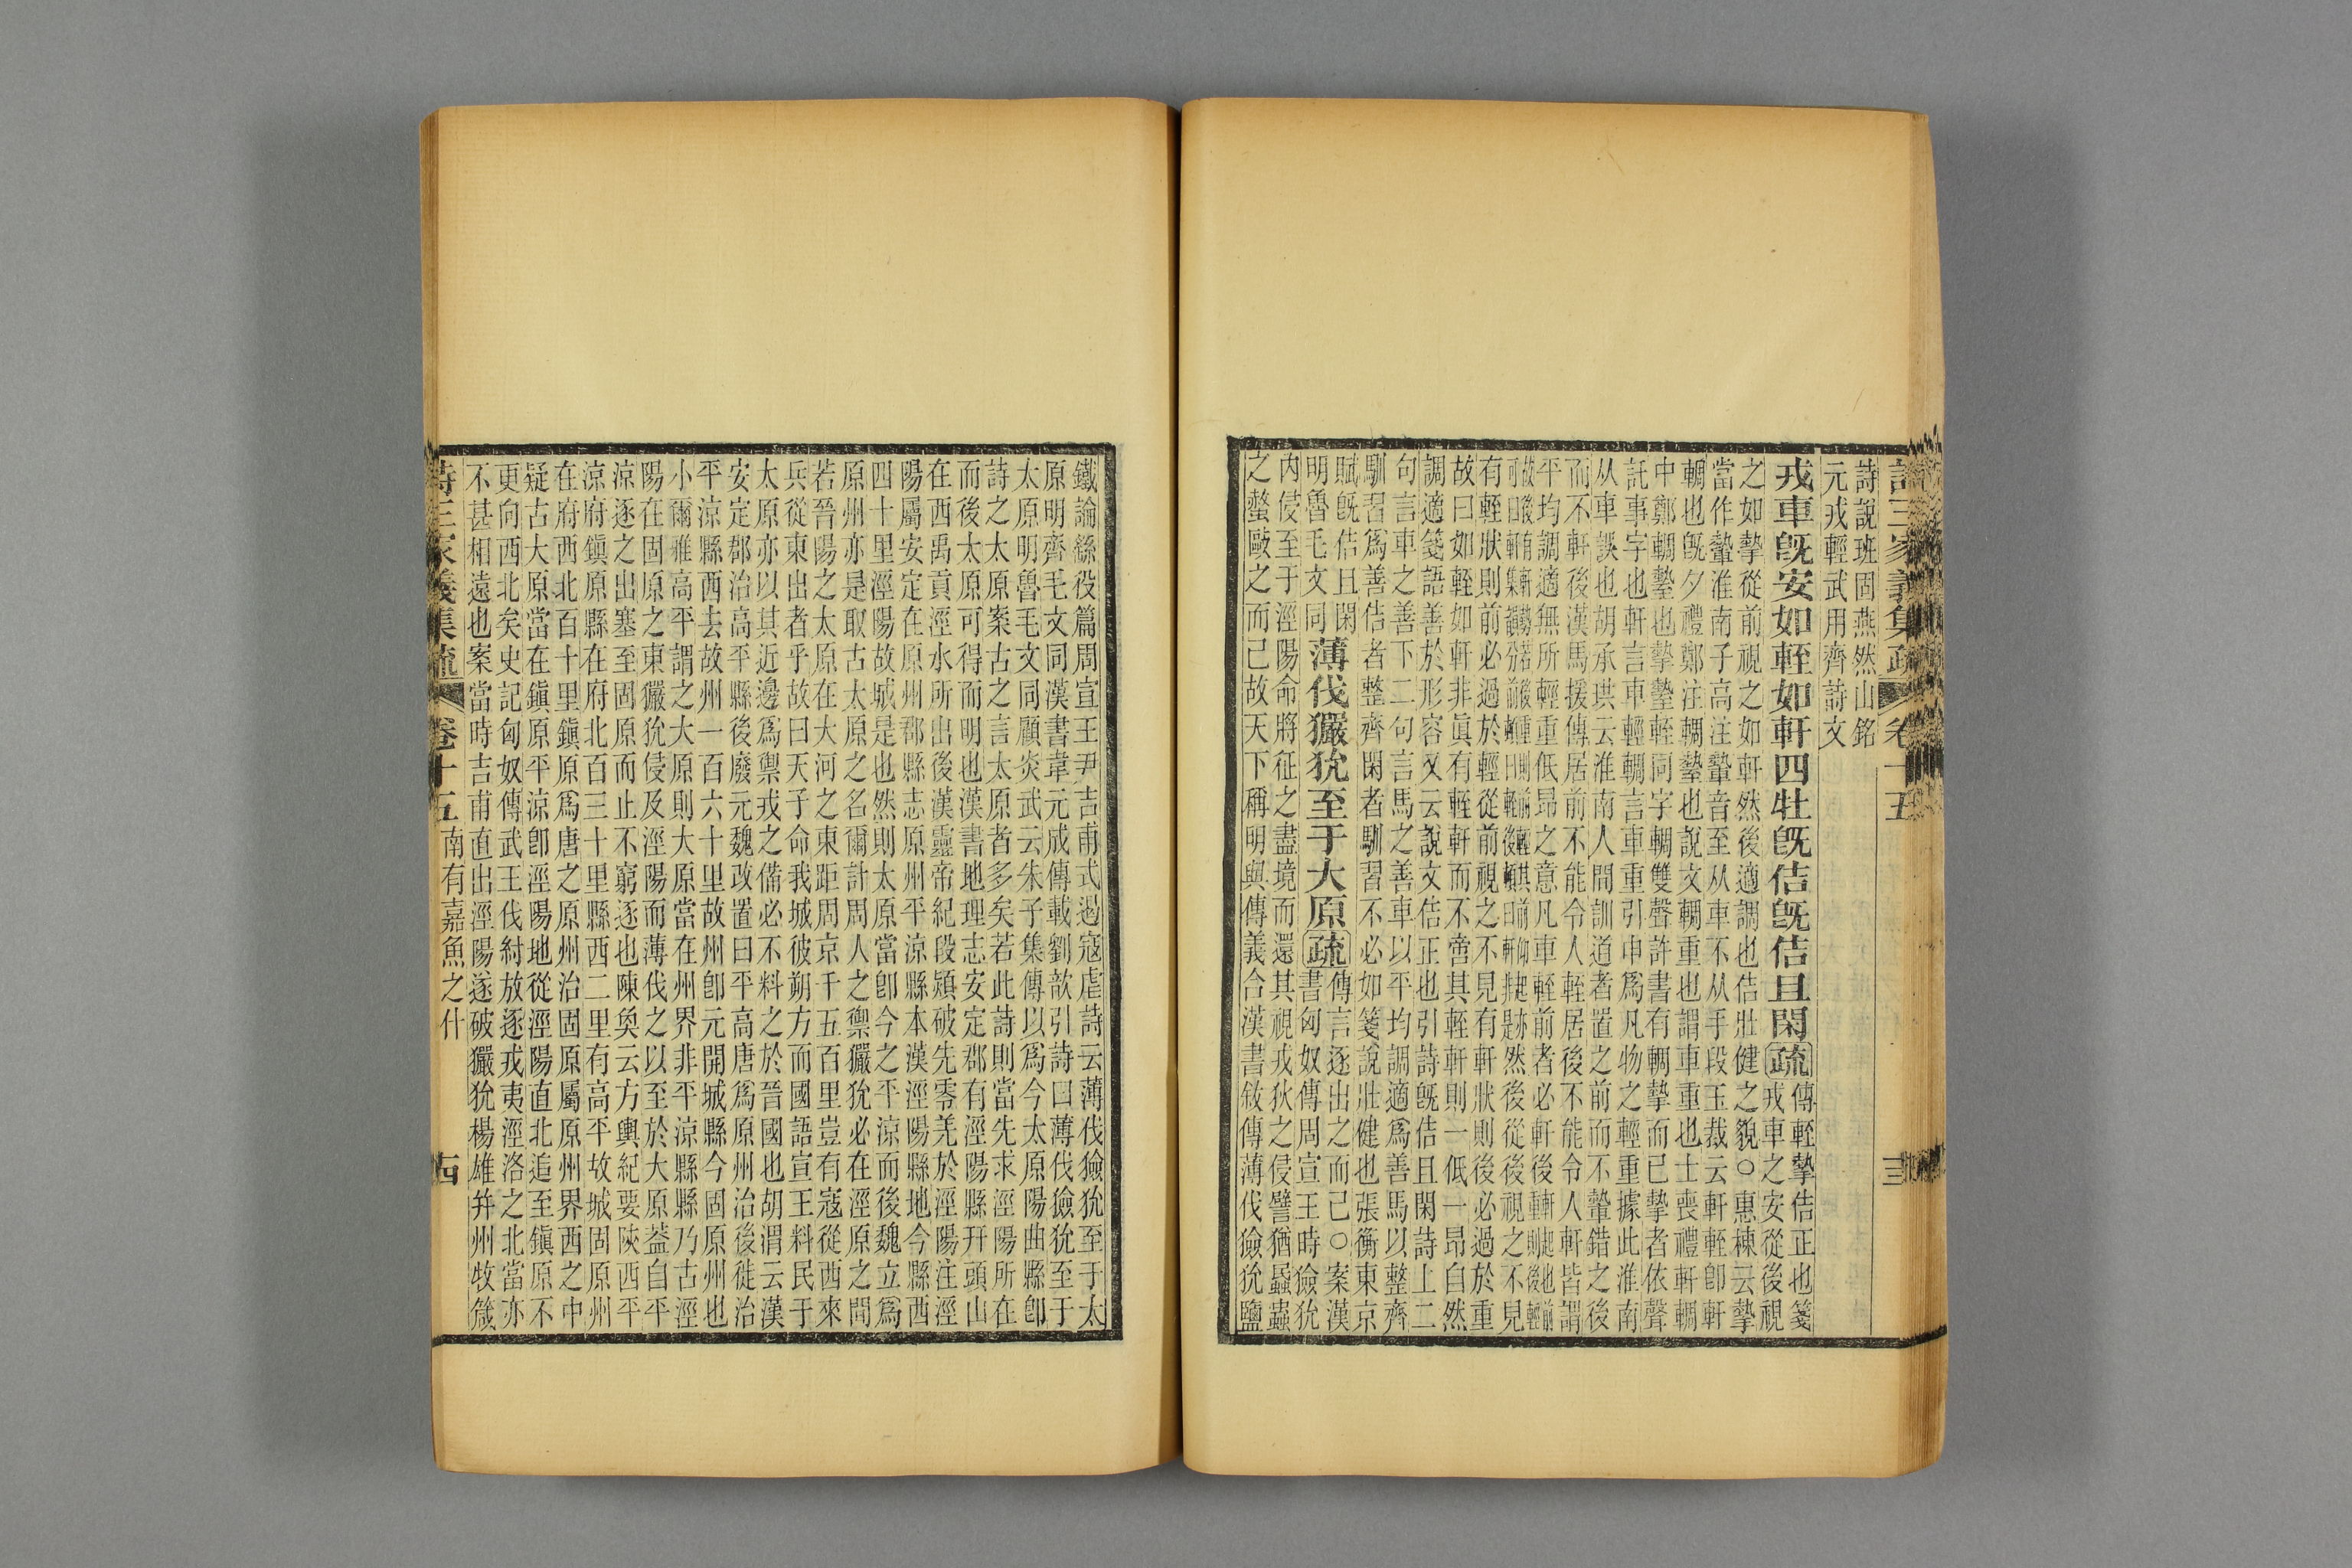 詩三家義集疏 卷十五 三
詩說班固燕然山銘
元戎輕武用齊詩文
戎車旣安如輊如軒四牡旣佶旣佶且閑疏
傳輊摯佶正也箋
戎車之安從後視
之如摯從前視之如軒然後適調也佶壯健之貌○惠棟云摯
當作蟄淮南子高注蟄音至从車不从手段玉裁云軒輊卽軒
輖也旣夕禮鄭注輖蟄也說文輖重也謂車重也士喪禮軒輖
中鄭輖摯也摯蟄輊同字輖雙聲許書有輖摯而已摯者依聲
託事字也軒言車輕輖言車重引申爲凡物之輕重據此淮南
从車誤也胡承珙云淮南人間訓道者置之前而不蟄錯之後
而不軒後漢馬援傳居前不能令人輊居後不能令人軒皆謂
平均調適無所輕重低昂之意凡車輊前者必軒後
然後從後視之不見
有輊狀則前必過於輕從前視之不見有軒狀則後必過於重
故曰如輊如軒非眞有輊軒而不啻其輊軒則一低一昂自然
調適箋語善於形容又云說文佶正也引詩旣佶且閑詩上二
句言車之善下二句言馬之善車以平均調適爲善馬以整齊
馴習爲善佶者整齊閑者馴習不必如箋說壯健也張衡東京
賦旣佶且閑
明魯毛文同
薄伐玁狁至于大原疏
傳言逐出之而已○案漢
書匈奴傳周宣王時獫狁
內侵至于涇陽命將征之盡境而還其視戎狄之侵譬猶蟁蝱
之螫敺之而已故天下稱明與傳義合漢書敘傳薄伐獫狁鹽
鐵論繇役篇周宣王尹吉甫式遏寇虐詩云薄伐獫狁至于太
原明齊毛文同漢書韋元成傳載劉歆引詩曰薄伐獫狁至于
太原明魯毛文同顧炎武云朱子集傳以爲今太原陽曲縣卽
詩之太原案古之言太原者多矣若此詩則當先求涇陽所在
而後太原可得而明也漢書地理志安定郡有涇陽縣幵頭山
在西禹貢涇水所出後漢靈帝紀段熲破先零羌於涇陽注涇
陽屬安定在原州郡縣志原州平涼縣本漢涇陽縣地今縣西
四十里涇陽故城是也然則太原當卽今之平涼而後魏立爲
原州亦是取古太原之名爾計周人之禦玁狁必在涇原之間
若晉陽之太原在大河之東距周京千五百里豈有寇從西來
兵從東出者乎故曰天子命我城彼朔方而國語宣王料民于
太原亦以其近邊爲禦戎之備必不料之於晉國也胡渭云漢
安定郡治高平縣後廢元魏改置曰平高唐爲原州治後徙治
平涼縣西去故州一百六十里故州卽元開城縣今固原州也
小爾雅高平謂之大原則大原當在州界非平涼縣縣乃古涇
陽在固原之東玁狁侵及涇陽而薄伐之以至於大原葢自平
涼逐之出塞至固原而止不窮逐也陳奐云方輿紀要陝西平
涼府鎭原縣在府北百三十里縣西二里有高平故城固原州
在府西北百十里鎭原爲唐之原州治固原屬原州界西之中
疑古大原當在鎭原平涼卽涇陽地從涇陽直北追至鎭原不
更向西北矣史記匈奴傳武王伐紂放逐戎夷涇洛之北當亦
不甚相遠也案當時吉甫直出涇陽遂破玁狁楊雄幷州牧箴
詩三家義集疏 卷十五 南有嘉魚之什 十四